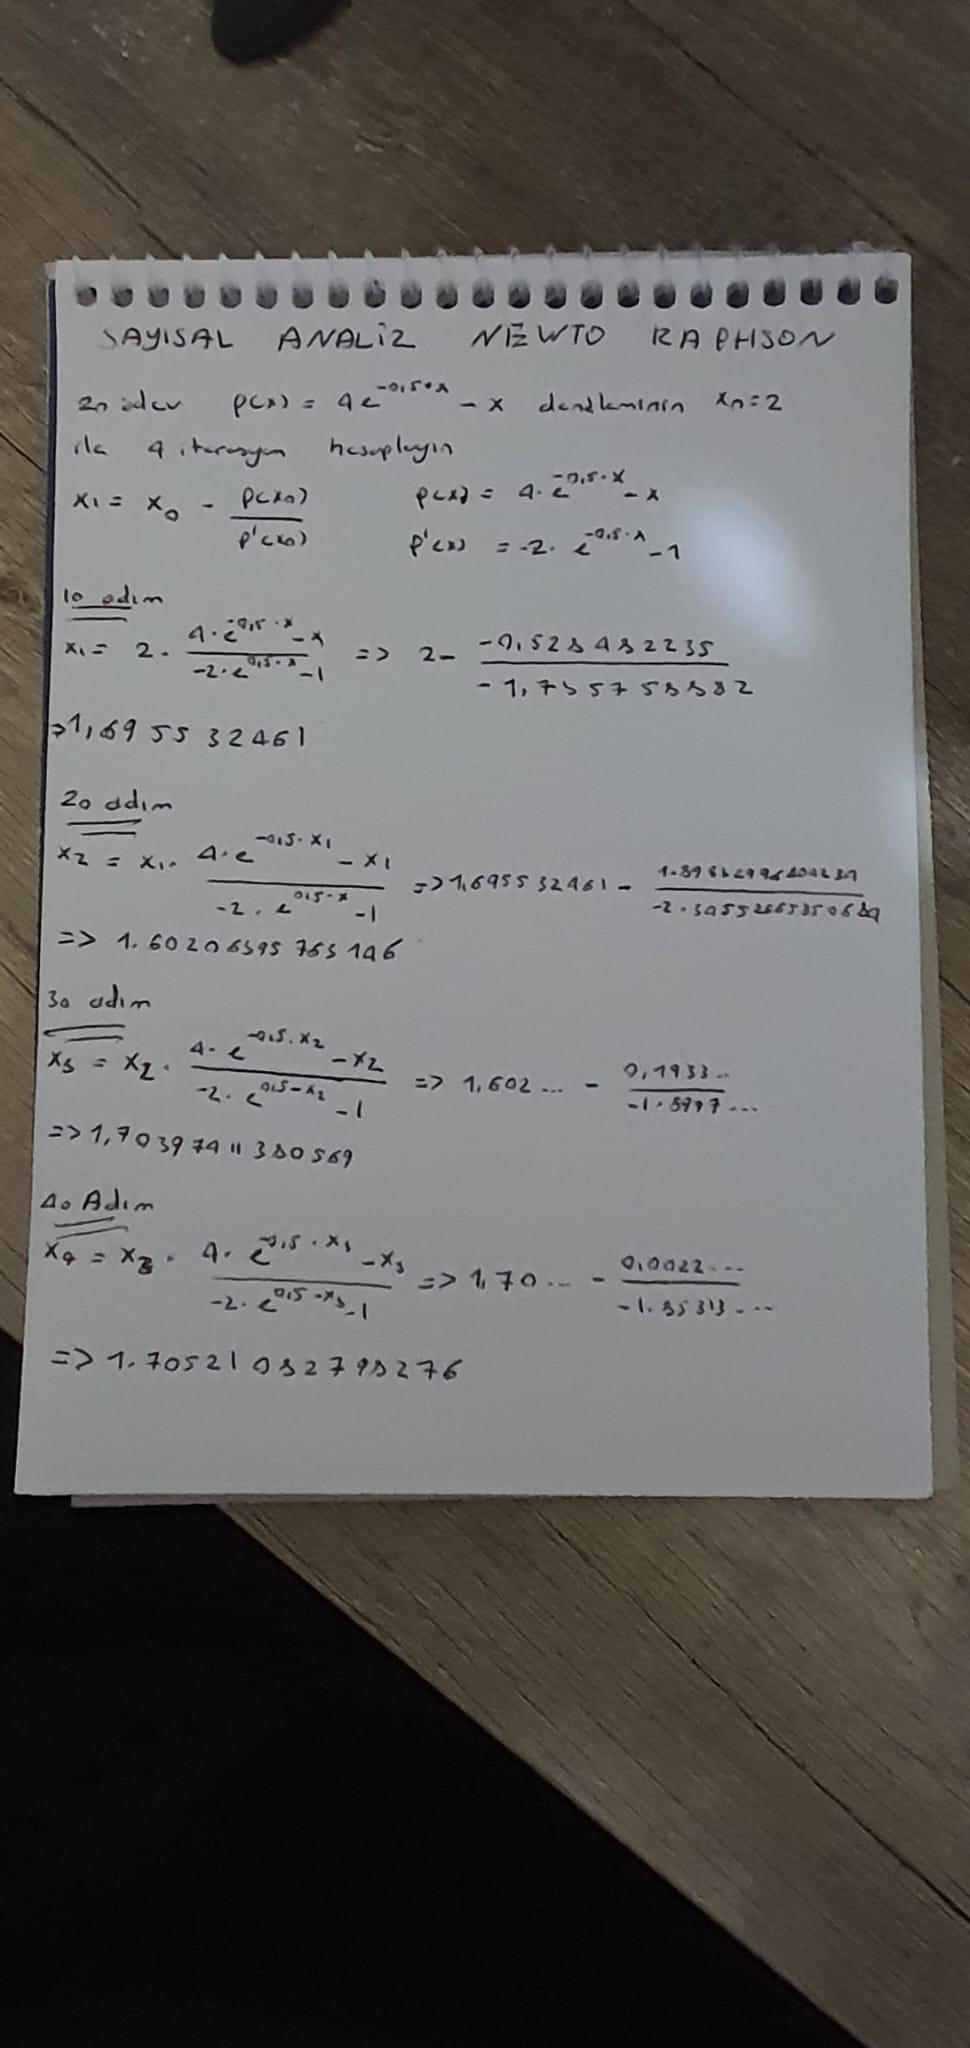 SAYISAL ANALİZ NEWTO RAPHSON
20 ödev p(x) = 4e^-0,5*x - x denkleminin x0=2
ile 4 iterasyon hesaplayın
x1 = x0 - p(x0)/p'(x0) p(x) = 4.e^-0,5.x - x
p'(x) = -2. e^-0,5.x - 1
10 adım
x1 = 2 - (4.e^-0,5.x - x)/(-2.e^0,5.x - 1) => 2 - (-0,528482235)/(-1,7357588882)
=> 1,6955532461
20 adım
x2 = x1 - (4.e^-0,5.x1 - x1)/(-2.e^0,5.x - 1) => 1,695532461 -
=> 1.60206595765146
30 adım
x3 = x2 - (4.e^-0,5.x2 - x2)/(-2.e^0,5-x2 - 1) => 1,602... - 0,1933../-1.8997...
=> 1,70397411380569
40 Adım
x4 = x3 - (4.e^-0,5.x3 - x3)/(-2.e^0,5-x3 - 1) => 1,70... - 0,0022.../-1.85313...
=> 1.70521032798276